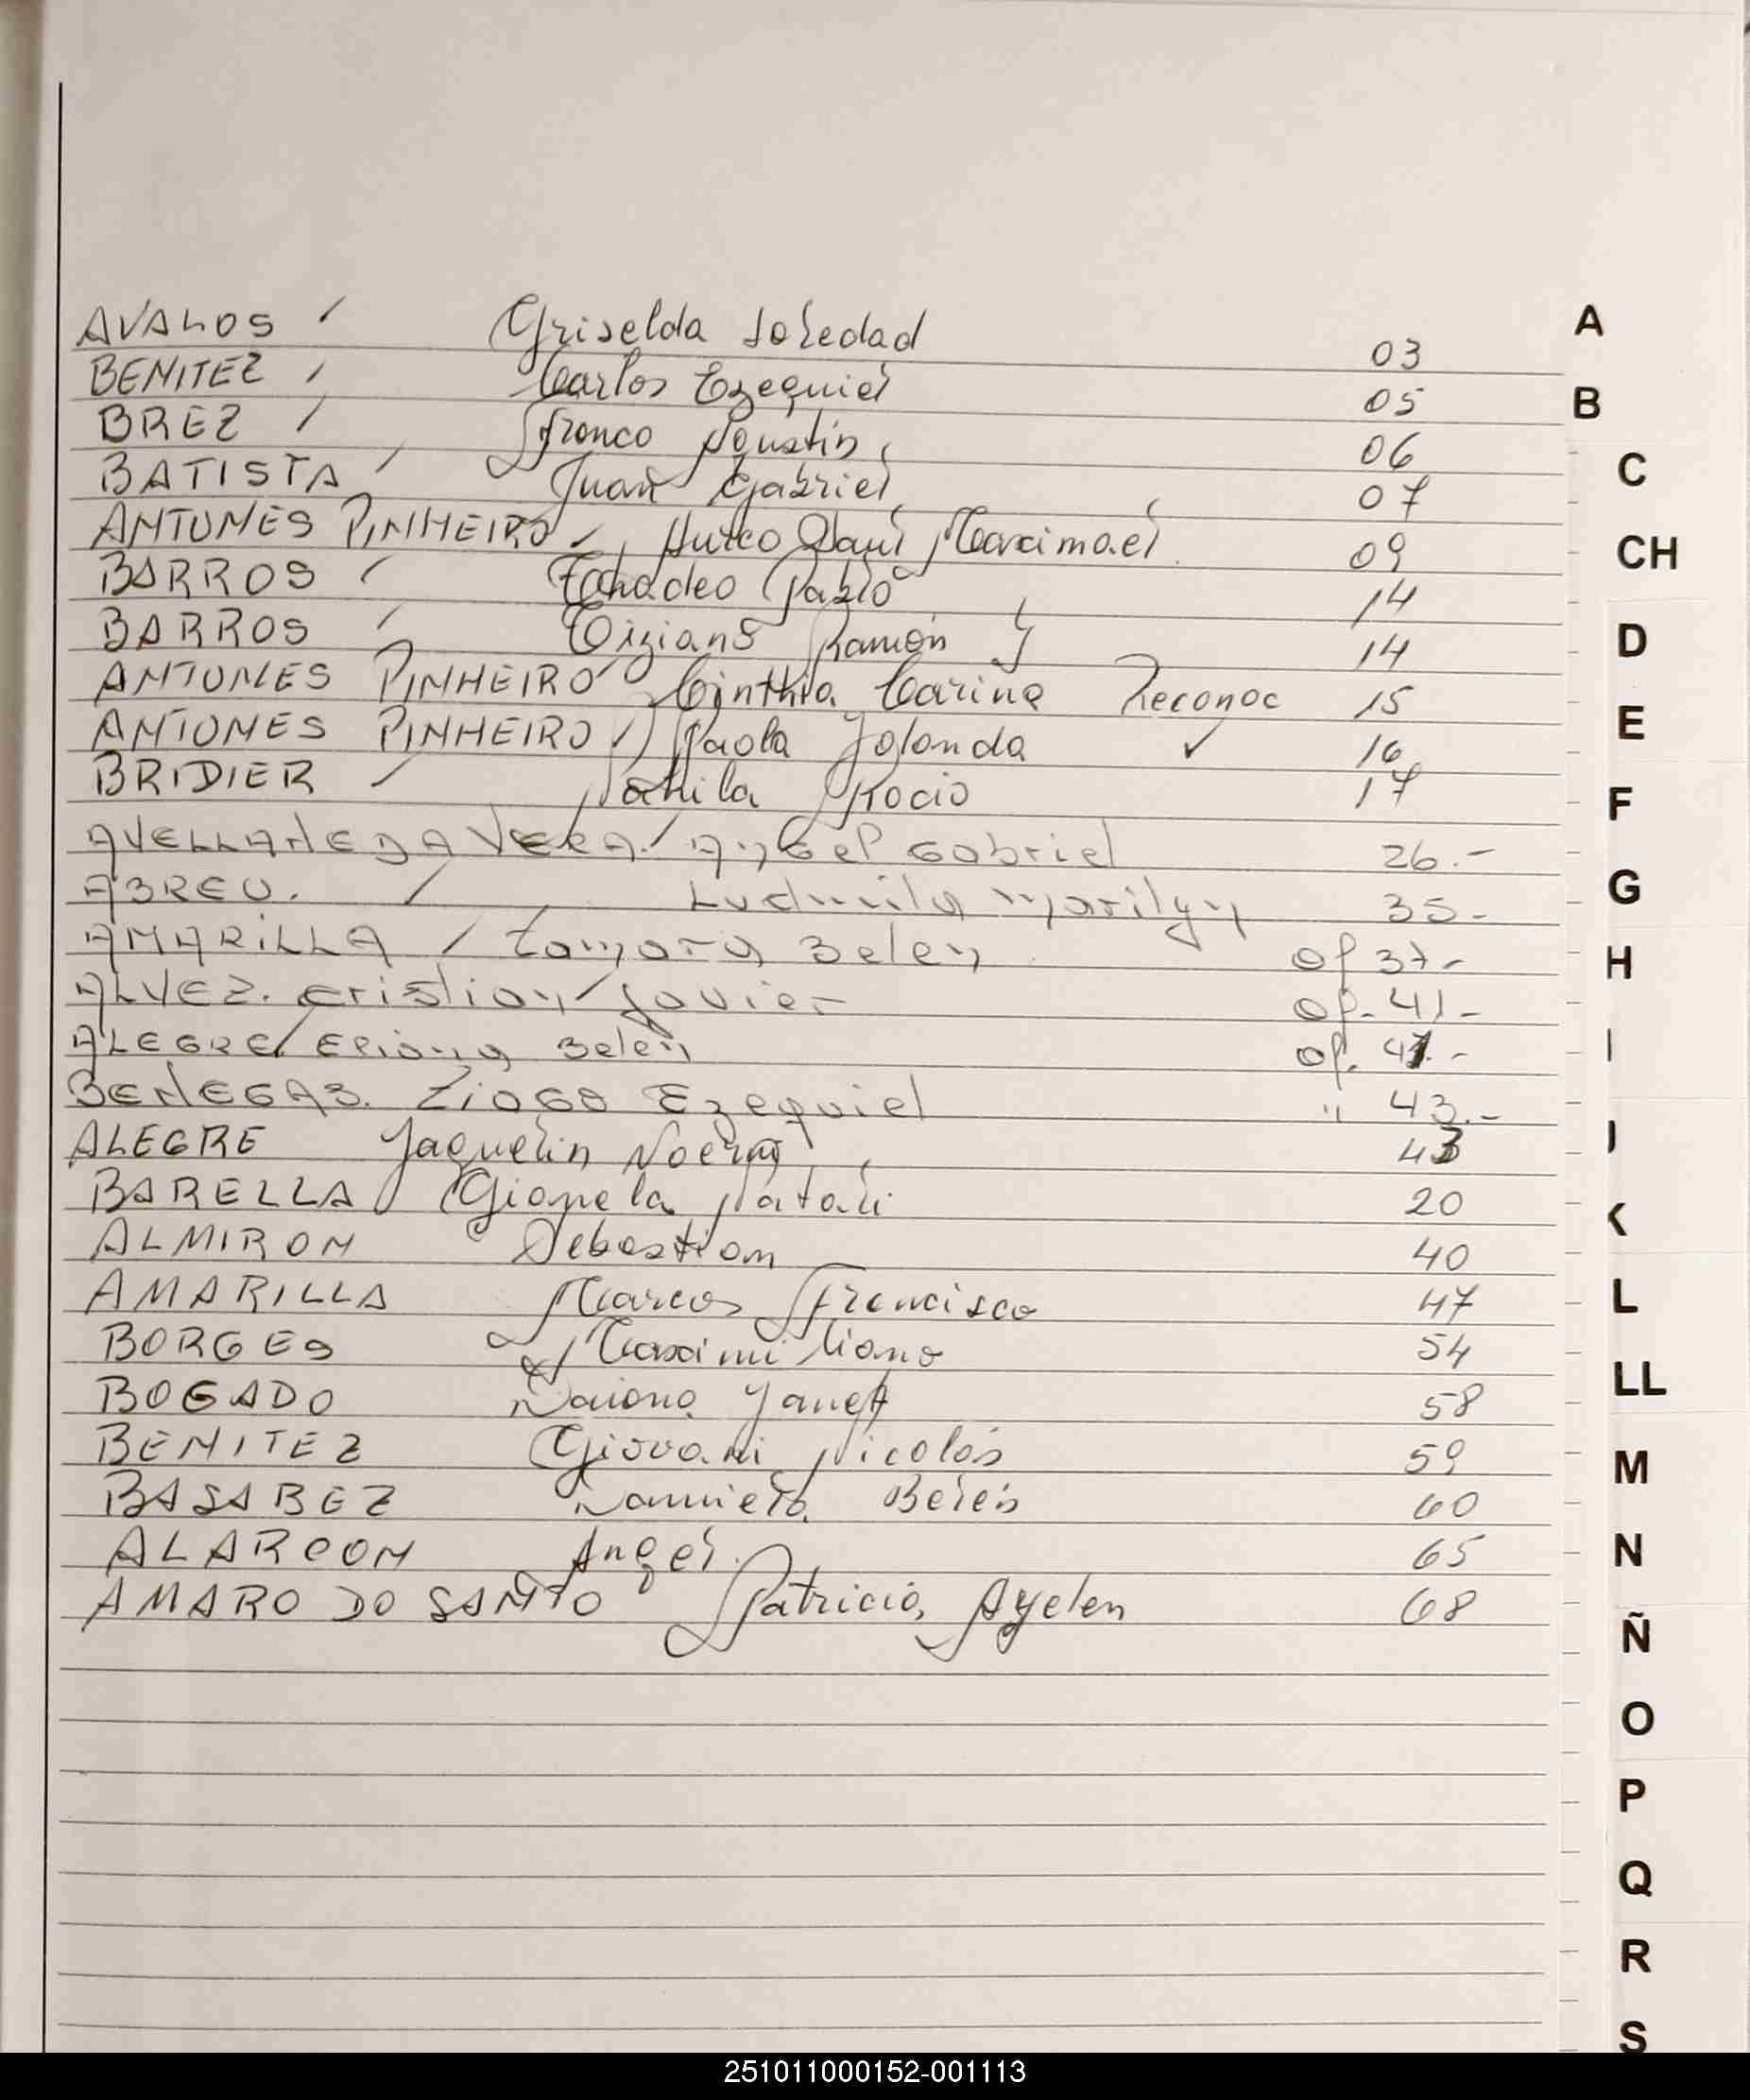 AVALOS / Griselda Soledad 03
BENITEZ / Carlos Ezequiel 05
BREZ / Franco Agustín 06
BATISTA / Juan Gabriel 07
ANTUNES PINHEIRO / Marcimoel 09
BARROS / Thadeo Pablo 14
BARROS / Tiziano Ramón 14
ANTUNES PINHEIRO Cinthia Carina Reconoc 15
ANTUNES PINHEIRO / Paola Yolanda ✓ 16
BRIDIER / Rocio 17
AVELLANEDA VERA / Angel Gabriel 26.-
ABREU. / Ludmila Marilyn 35-
AMARILLA / tamara Belen of 37-
ALVEZ. Cristian / Javier of-41-
ALEGRE / Belen of. 41.-
BENEGAS. Ezequiel " 43.-
ALEGRE Jaquelin Noemi 43
BARELLA Gianela Natali 20
ALMIRON Sebastian 40
AMARILLA Marcos Francisco 47
BORGES Maximiliano 54
BOGADO Daiana Yanet 58
BENITEZ Giovani Nicolás 59
BASABEZ Daniela Belén 60
ALARCON Angel. 65
AMARO DO SANTO Patricia Ayelen 68
A
B
C
CH
D
E
F
G
H
I
J
K
L
LL
M
N
Ñ
O
P
Q
R
S
251011000152-001113